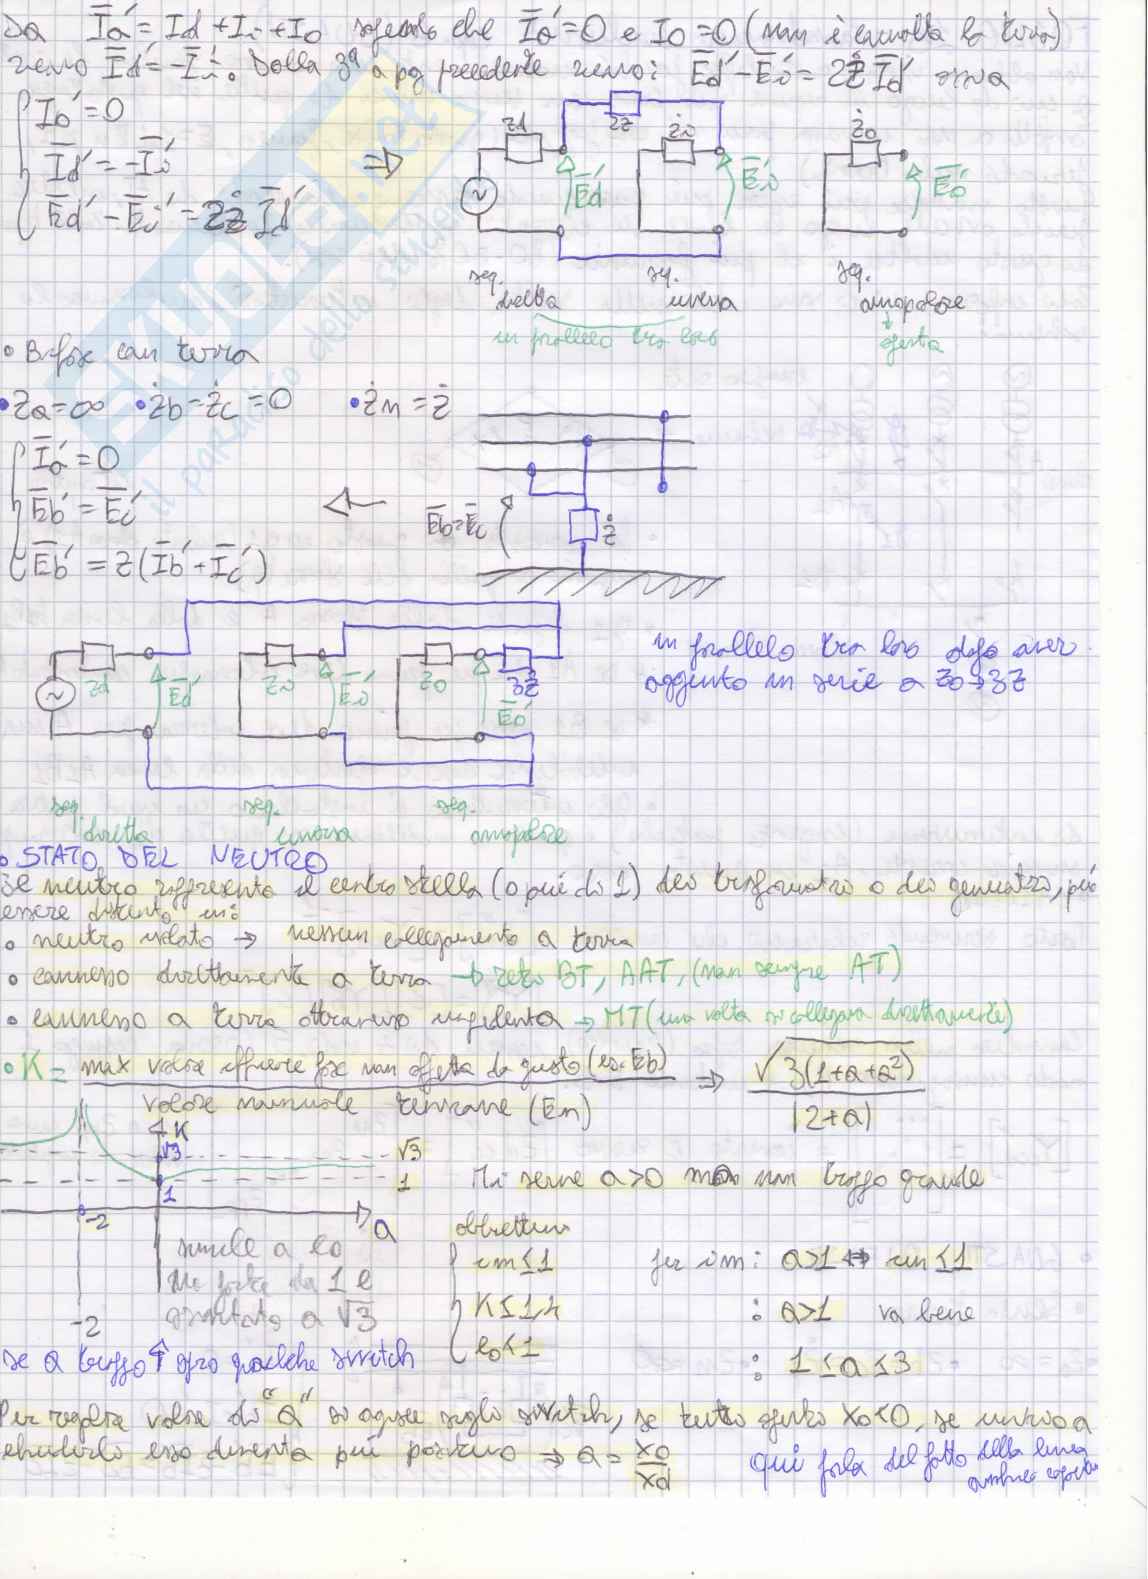 Da Īa' = Id + Ii + I0 sapendo che Īa' = 0 e I0 = 0 (non è coinvolta la terra)
Īd' = -Īi'. Dalla 3ª a pg precedente Ēd' - Ēi' = 2Ż Īd' ossia
I0' = 0
Īd' = -Īi'
Ēd' - Ēi' = 2Ż Īd'
⇒
zd
2z
żi
ż0
Ēd'
Ēi'
Ē0'
seq. diretta
seq. inversa
seq. omopolare
in parallelo tra loro
aperta
• Bifase con terra
• Ża = ∞ • Żb = Żc = 0 • Żn = Ż
Īa' = 0
Ēb' = Ēc'
Ēb' = Z(Īb' + Īc')
Ēb = Ēc
ż
zd
Ēd'
zi
Ēi'
z0
Ē0'
3ż
in parallelo tra loro dopo aver
aggiunto in serie a Z0 → 3Z
seq. diretta
seq. inversa
seq. omopolare
• STATO DEL NEUTRO
Il neutro rappresenta il centro stella (o più di 1) del trasformatore o del generatore, può
essere distinto in:
• neutro isolato → nessun collegamento a terra
• connesso direttamente a terra → reti BT, AAT, (non sempre AT)
• connesso a terra attraverso impedenza → MT (una volta si collegava direttamente)
• K = max valore efficace fase non affetta da guasto (es. Eb) ⇒ √3(1+a+a²)
valore nominale tensione (En) |2+a|
K
√3
√3
1
1
-2
a
Mi serve a>0 ma non troppo grande
simile a e0
ma parte da 1 e
a √3
-2
obiettivi
im ≤ 1
K ≤ 1,4
e0 < 1
per im: a>1 ⇔ im ≤ 1
: a>1 va bene
: 1 ≤ a ≤ 3
se a troppo ↑ apro qualche switch
Per regolare valore di "a" si agisce sugli switch, se tutto aperto X0<0, se inizio a
chiuderlo esso diventa più positivo ⇒ a = X0/Xd
qui parla del fatto della linea